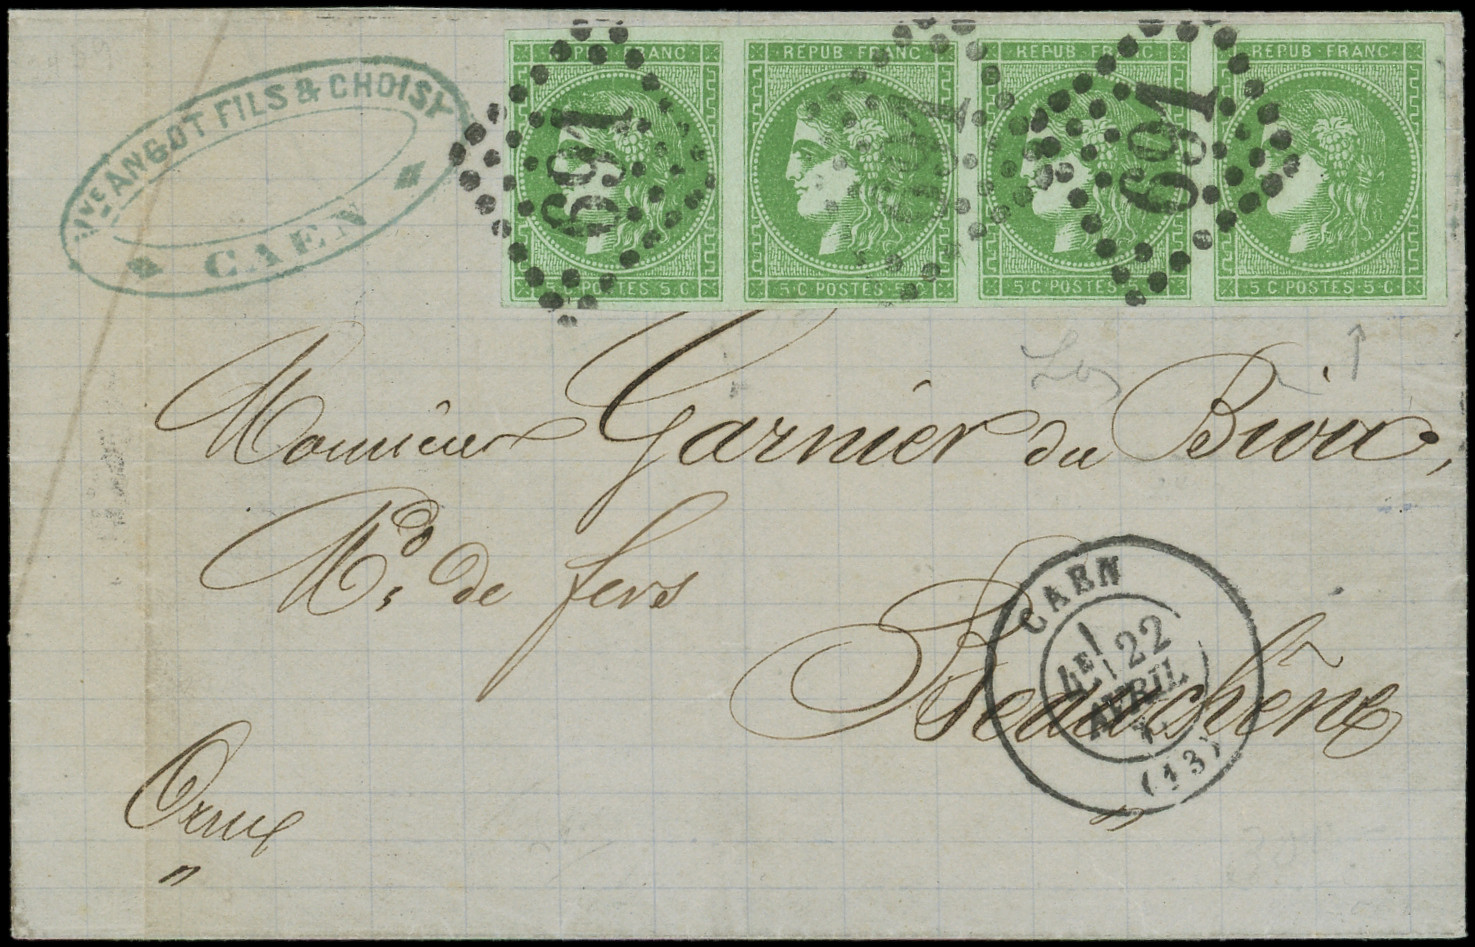 Vve ANGOT FILS & CHOISY
CAEN
REPUB FRANC REPUB FRANC REPUB FRANC REPUB FRANC
691 691 691
5 C POSTES 5 C 5 C POSTES 5 C POSTES 5 C POSTES 5 C
Monsieur Garnier du Biou,
Md. de fers
Beauchêne
Orne
"
"
CAEN
4E 22
AVRIL
71
(13)